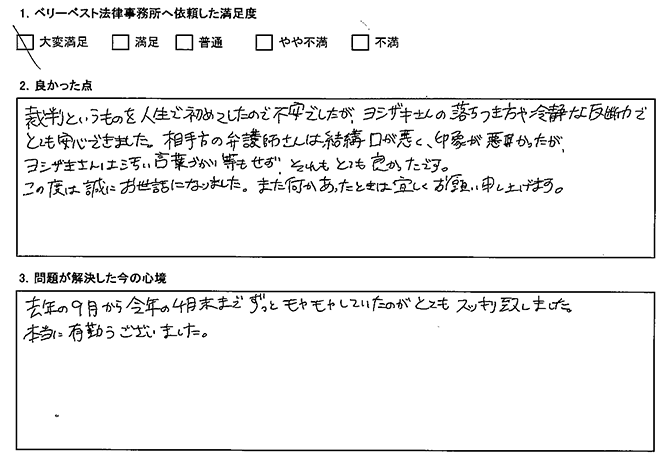 1. ベリーベスト法律事務所へ依頼した満足度
大変満足 満足 普通 やや不満 不満
2. 良かった点
裁判というものを人生で初めてしたので不安でしたが、ヨシザキさんの落ちつき方や冷静な反断力で
とても安心できました。相手方の弁護師さんは結構口が悪く、印象が悪かったが、
ヨシザキさんはそう汚い言葉づかい等もせず、それもとても良かったです。
この度は誠にお世話になりました。また何かあったときは宜しくお願い申し上げます。
3. 問題が解決した今の心境
去年の9月から今年の4月末までずっとモヤモヤしていたのがとてもスッキリ致しました。
本当に有勤うございました。